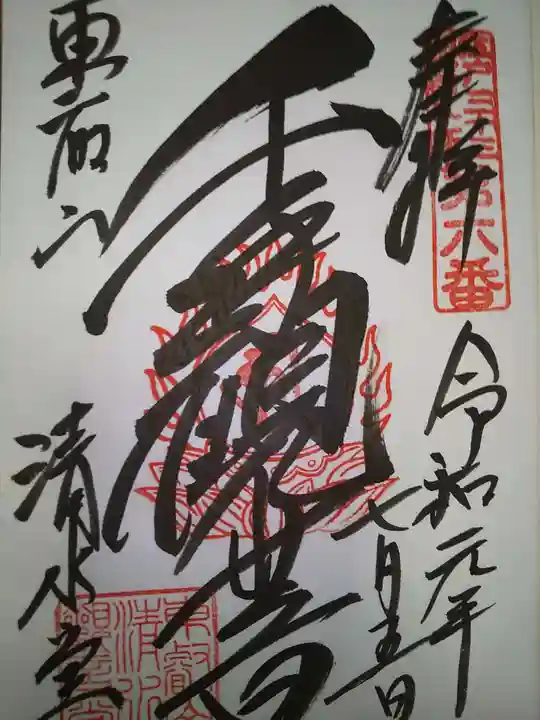 奉拝
第六番
令和元年
七月五日
千手觀世音
東叡山
清水堂